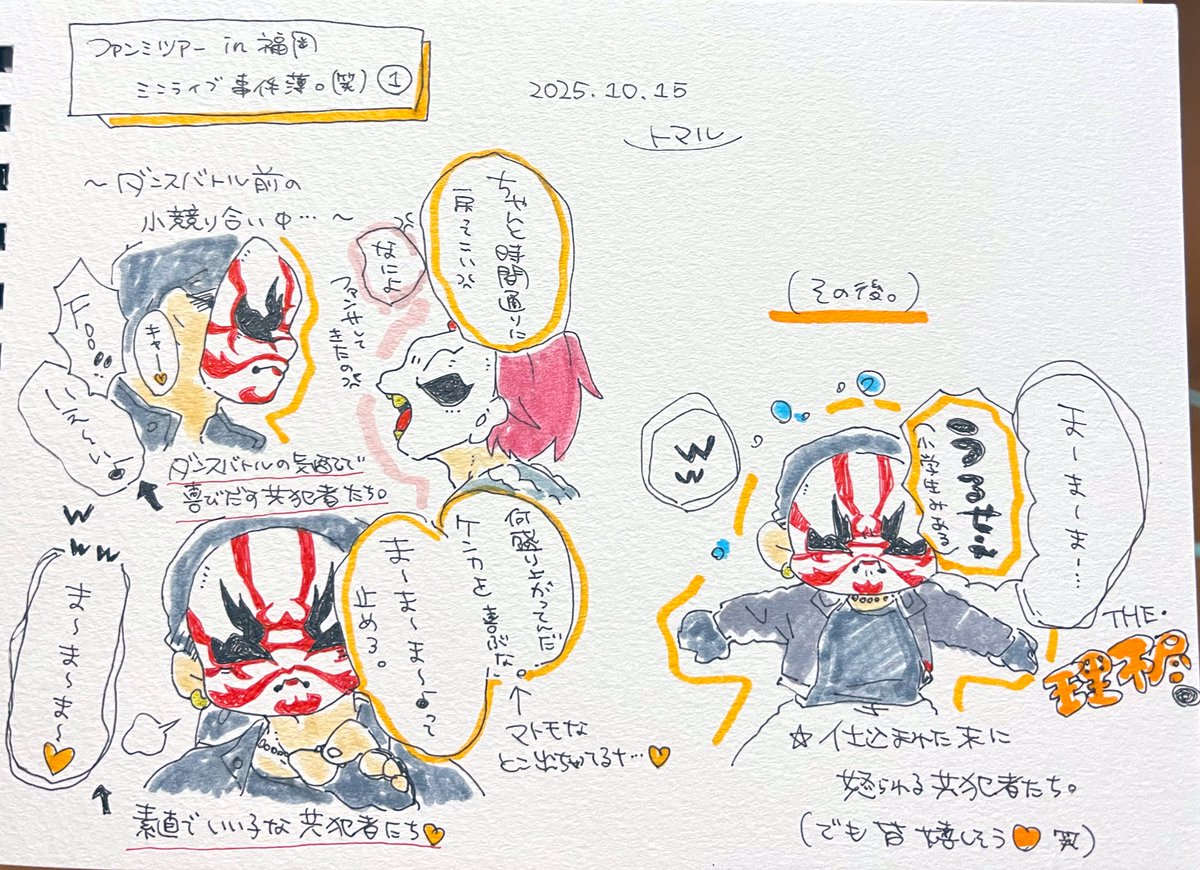 ファンミツアー in 福岡
ミニライブ事件簿。(笑) ①
2025.10.15
トマル
〜ダンスバトル前の
小競り合い中…〜
ちゃんと時間通りに
戻ってこい
なによ
ファンサして
きたのよ
キャー
Foo
いえーい
ダンスバトルの気配で
喜びだす共犯者たち。
何盛り上がってんだ!
ケンカを喜ぶな。
ま〜ま〜ま〜って
止めろ。
↑
マトモな
とこ出ちゃってるケド…
w
ww
ま〜ま〜ま〜
素直でいい子な共犯者たち
(その後。)
ま〜ま〜ま〜…
うるせぇ
(小学生みある)
w
w
THE・
理不尽
☆仕込まれた末に
怒られる共犯者たち。
(でも皆嬉しそう 笑)